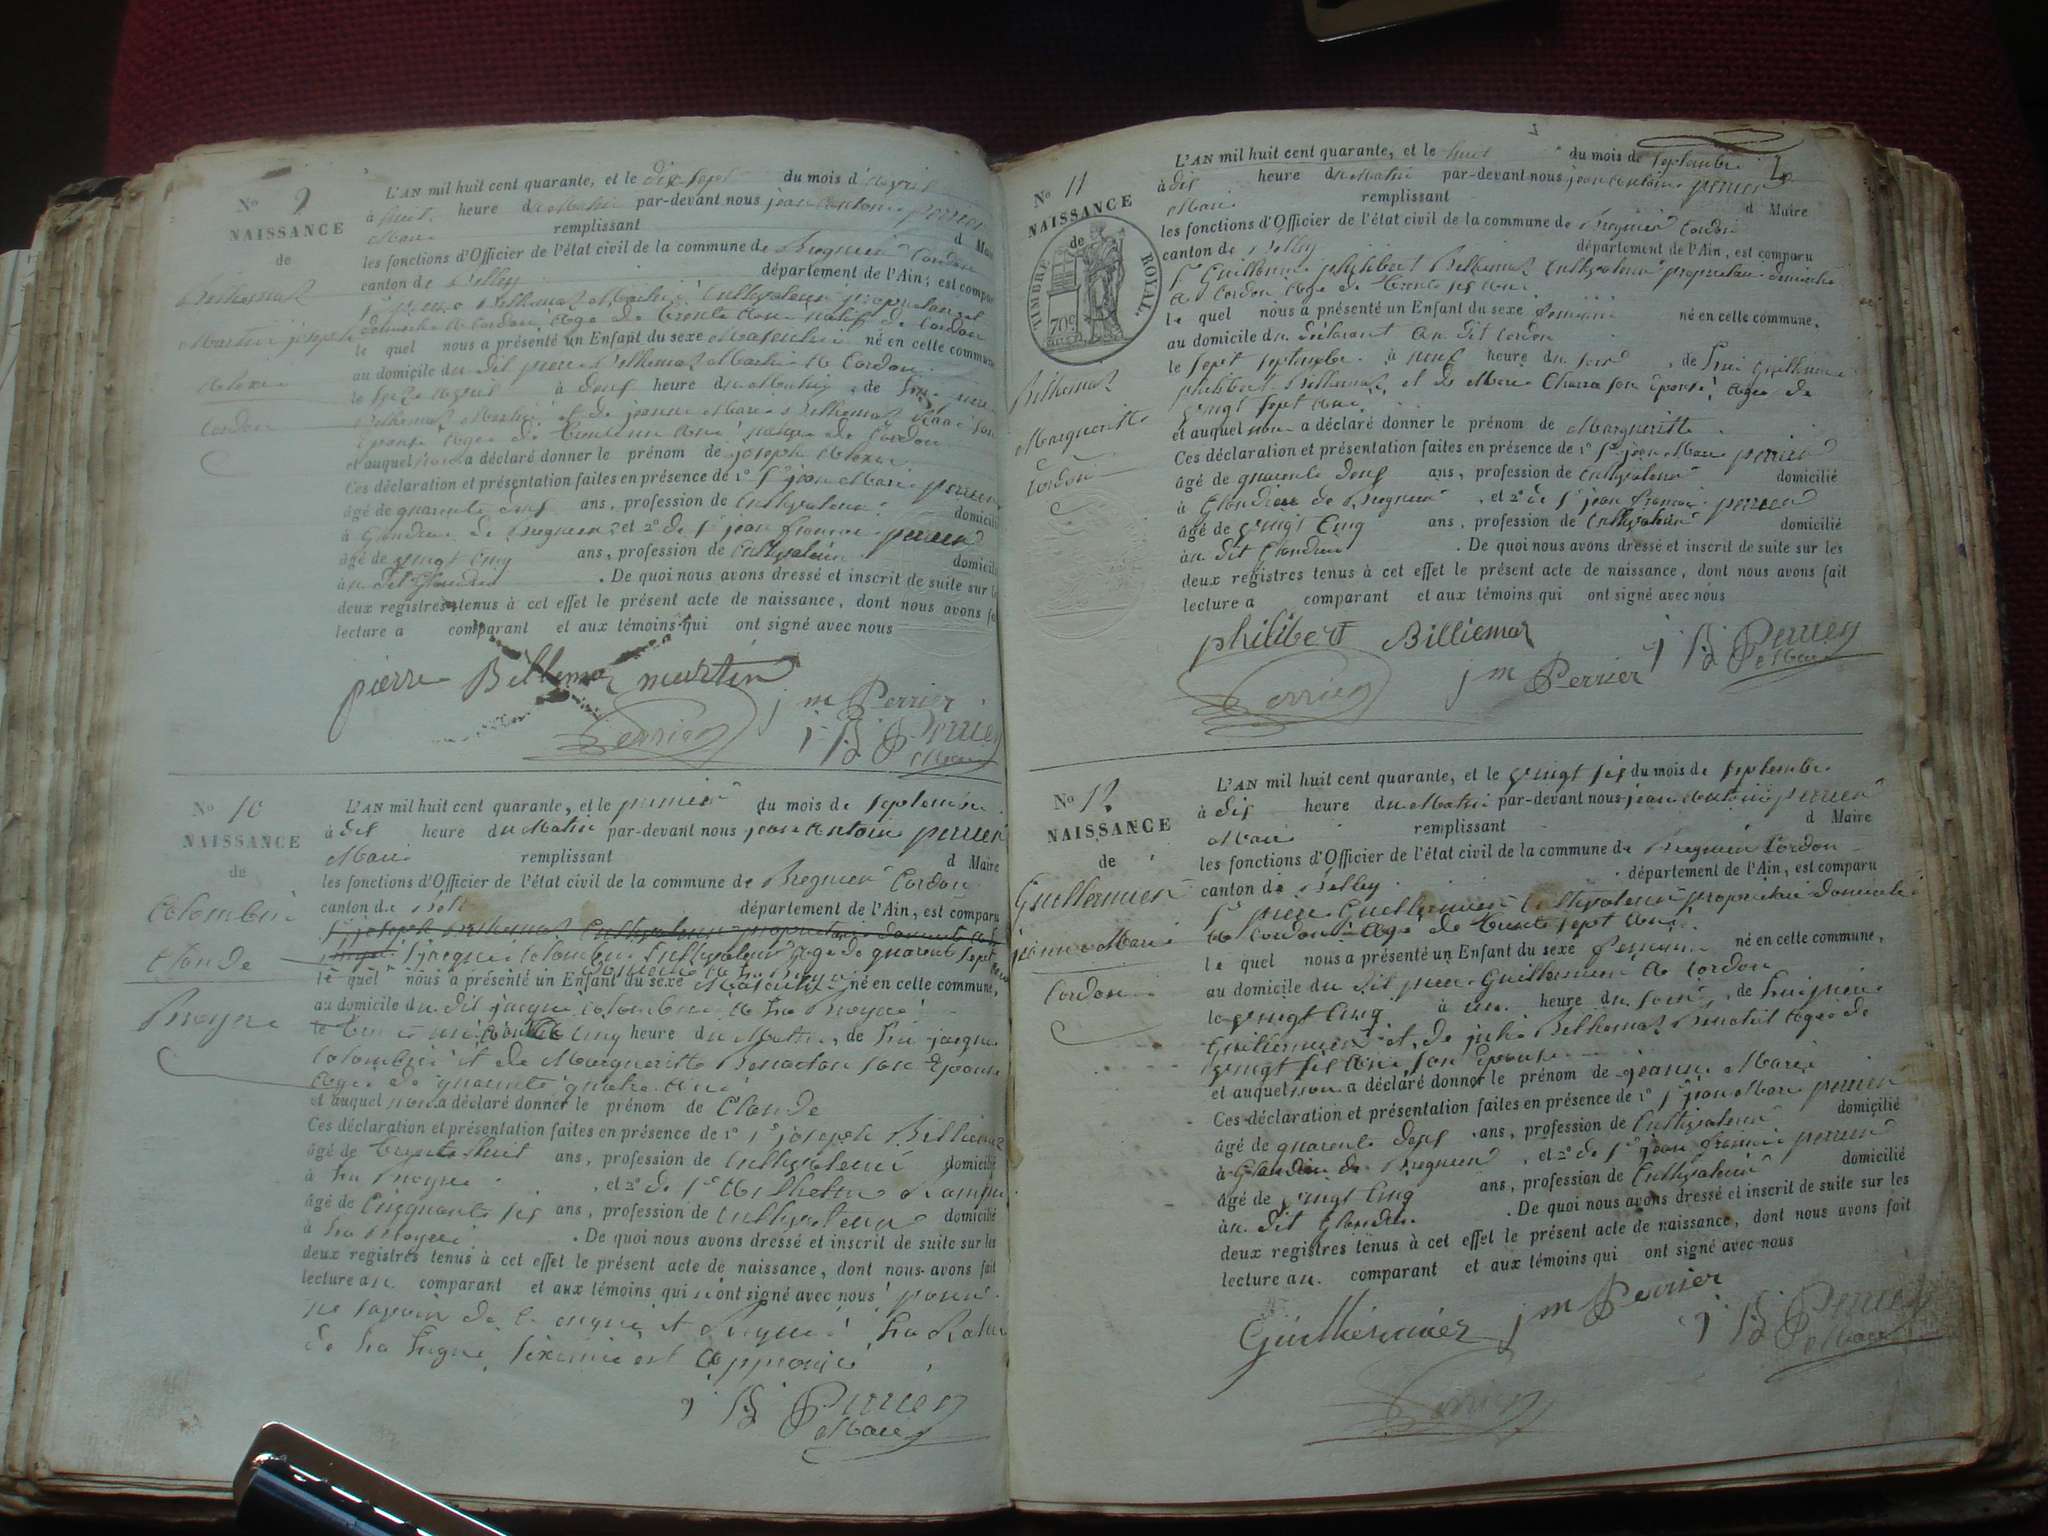 No 9
NAISSANCE
de
Billiemaz
Martin joseph
alexis
Cordon
L'AN mil huit cent quarante, et le dix sept du mois d'
à huit heure du Matin par-devant nous jean antoine perrier
Maire remplissant d Maire
les fonctions d'Officier de l'état civil de la commune de Bregnier Cordon
canton de Belley département de l'Ain, est comparu
Sr pierre Billiemaz Martin Cultivateur propriétaire
domicilié à Cordon âgé de trente ans natif de Cordon
le quel nous a présenté un Enfant du sexe Masculin né en cette commune
au domicile du dit pierre Billiemaz Martin à Cordon
le seize à deux heure du Matin, de lui pierre
Billiemaz Martin et de jeanne Marie Billiemaz son
Epouse âgée de de Cordon
et auquel nous a déclaré donner le prénom de joseph alexis
Ces déclaration et présentation faites en présence de 1o Sr jean Marie perrier
âgé de quarante deux ans, profession de Cultivateur domicilié
à Glandieu de Bregnier, et 2o de Sr jean françois perrier
âgé de vingt Cinq ans, profession de Cultivateur domicilié
à u dit Glandieu. De quoi nous avons dressé et inscrit de suite sur les
deux registres tenus à cet effet le présent acte de naissance, dont nous avons fait
lecture a comparant et aux témoins qui ont signé avec nous
pierre Billiemaz martin
j m Perrier
Perrier
j B Perrier
Maire
No 10
NAISSANCE
de
Colombin
Claude
L'AN mil huit cent quarante, et le premier du mois de septembre
à dix heure du Matin par-devant nous jean antoine perrier
Maire remplissant d Maire
les fonctions d'Officier de l'état civil de la commune de Bregnier Cordon
canton de Belley département de l'Ain, est comparu
Sr joseph Billiemaz Cultivateur propriétaire domicilié
Sr jacque Colombin Cultivateur âgé de quarante sept
le quel nous a présenté un Enfant du sexe Masculin né en cette commune,
au domicile du dit jacque Colombin à
Cinq heure du Matin, de lui jacque
Colombin et de Margueritte son Epouse
âgée de quarante quatre ans
et auquel nous a déclaré donner le prénom de Claude
Ces déclaration et présentation faites en présence de 1o Sr joseph Billiemaz
âgé de trente huit ans, profession de Cultivateur domicilié
à, et 2o de Sr
âgé de Cinquante six ans, profession de Cultivateur domicilié
à. De quoi nous avons dressé et inscrit de suite sur les
deux registres tenus à cet effet le présent acte de naissance, dont nous avons fait
lecture au comparant et aux témoins qui n'ont signé avec nous pour
ne savoir de ce enquis et Requis
de la ligne sixième est approuvé
j B Perrier
Maire
No 11
NAISSANCE
de
TIMBRE ROYAL
70c
Billiemaz
Margueritte
Cordon
L'AN mil huit cent quarante, et le huit du mois de septembre
à dix heure du Matin par-devant nous jean antoine perrier
Maire remplissant d Maire
les fonctions d'Officier de l'état civil de la commune de Bregnier Cordon
canton de Belley département de l'Ain, est comparu
Sr Guillaume philibert Billiemaz Cultivateur propriétaire domicilié
à Cordon âgé de trente six ans
le quel nous a présenté un Enfant du sexe feminin né en cette commune,
au domicile du déclarant au dit Cordon
le sept septembre à neuf heure du soir, de lui Guillaume
philibert Billiemaz et de Marie son Epouse âgée de
vingt sept ans
et auquel nous a déclaré donner le prénom de Margueritte
Ces déclaration et présentation faites en présence de 1o Sr jean Marie perrier
âgé de quarante deux ans, profession de Cultivateur domicilié
à Glandieu de Bregnier, et 2o de Sr jean françois perrier
âgé de vingt Cinq ans, profession de Cultivateur domicilié
à u dit Glandieu. De quoi nous avons dressé et inscrit de suite sur les
deux registres tenus à cet effet le présent acte de naissance, dont nous avons fait
lecture a comparant et aux témoins qui ont signé avec nous
philibert Billiemaz
Perrier
j m Perrier
j B Perrier
Maire
No 12
NAISSANCE
de
Guilliermier
jeanne Marie
Cordon
L'AN mil huit cent quarante, et le vingt six du mois de septembre
à dix heure du Matin par-devant nous jean antoine perrier
Maire remplissant d Maire
les fonctions d'Officier de l'état civil de la commune de Bregnier Cordon
canton de Belley département de l'Ain, est comparu
Sr pierre Guilliermier Cultivateur propriétaire domicilié
à Cordon âgé de trente sept ans
le quel nous a présenté un Enfant du sexe feminin né en cette commune,
au domicile du dit pierre Guilliermier à Cordon
le vingt Cinq à une heure du soir, de lui pierre
Guilliermier et de julie Billiemaz âgée de
vingt six ans son Epouse
et auquel nous a déclaré donner le prénom de jeanne Marie
Ces déclaration et présentation faites en présence de 1o Sr jean Marie perrier
âgé de quarante deux ans, profession de Cultivateur domicilié
à Glandieu de Bregnier, et 2o de Sr jean françois perrier
âgé de vingt Cinq ans, profession de Cultivateur domicilié
à u dit Glandieu. De quoi nous avons dressé et inscrit de suite sur les
deux registres tenus à cet effet le présent acte de naissance, dont nous avons fait
lecture au comparant et aux témoins qui ont signé avec nous
Guilliermier
j m Perrier
j B Perrier
Maire
Perrier